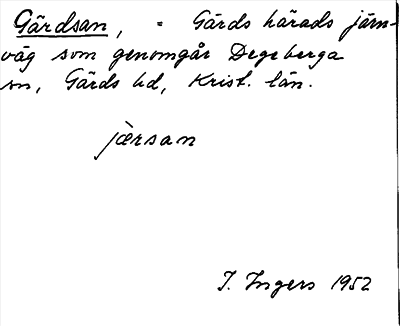 Gärdsan, = Gärds härads järn-
väg som genomgår Degeberga
sn, Gärds hd, Krist. län.
jàrsan
I. Ingers 1952